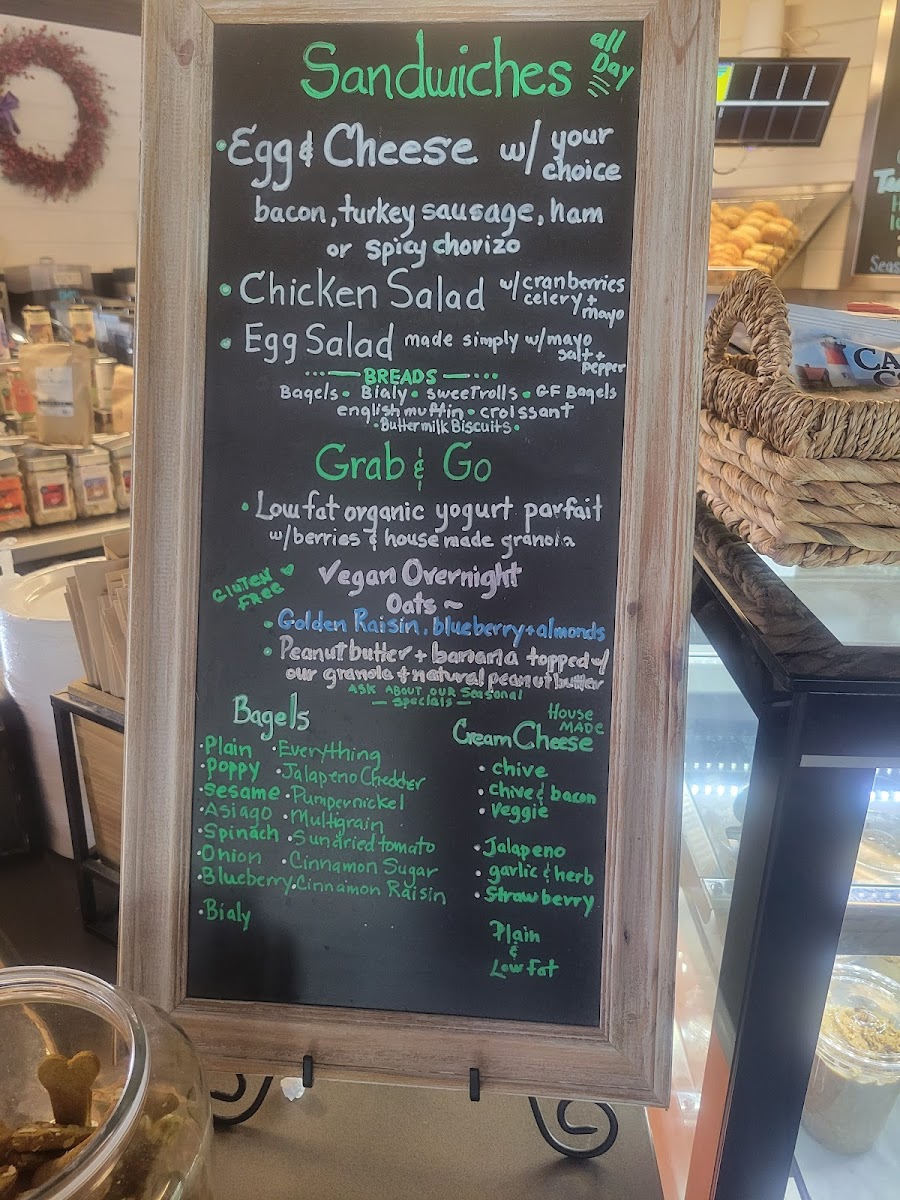 Sandwiches all Day
• Egg & Cheese w/ your choice
bacon, turkey sausage, ham
or spicy chorizo
• Chicken Salad w/cranberries celery + mayo
• Egg Salad made simply w/mayo salt + pepper
BREADS
Bagels • Bialy • sweet rolls • GF Bagels
english muffin • croissant
• Buttermilk Biscuits •
Grab & Go
• Low fat organic yogurt parfait
w/berries & house made granola
GLUTEN FREE
Vegan Overnight
Oats ~
• Golden Raisin, blueberry + almonds
• Peanut butter + banana topped w/
our granola & natural peanut butter
ASK ABOUT OUR Seasonal
— specials —
Bagels
• Plain • Everything
• Poppy • Jalapeno Chedder
• Sesame • Pumpernickel
• Asiago • Multigrain
• Spinach • Sundried tomato
• Onion • Cinnamon Sugar
• Blueberry • Cinnamon Raisin
• Bialy
House MADE
Cream Cheese
• chive
• chive & bacon
• Veggie
• Jalapeno
• garlic & herb
• Strawberry
Plain
&
Low Fat
CA